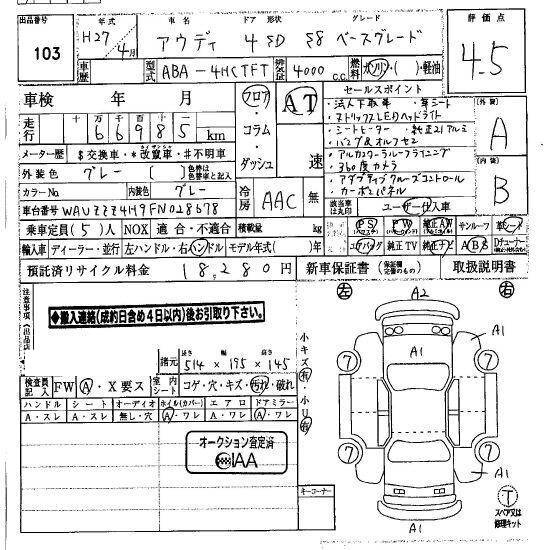 出品番号
103
年式
H27年
4月
車名
アウディ
ドア 形状
4 SD
グレード
S8 ベースグレード
評価点
4.5
車歴
型式
ABA-4HCTFT
排気量
4000 c.c.
燃料
ガソリン・( )・軽油
車検 年 月
走行
十万 万 千 百 十 一
6 6 9 8 5 km
フロア・コラム・ダッシュ
AT
速
セールスポイント
・法人下取車 ・革シート
・マトリックスLEDヘッドライト
・シートヒーター ・純正21アルミ
・アルカンターラルーフライニング
・360度カメラ
・アダプティブクルーズコントロール
・カーボンパネル
外装
A
内装
B
メーター歴 $交換車・*改竄車・#不明車
外装色 グレー ( )
色替車は
色替車と記入
カラーNo.
内装色 グレー
冷房
AAC
無
該当車は丸印
ユーザー仕入車
車台番号 WAUZZZ4H9FN028678
乗車定員( 5 )人 NOX 適合・不適合 積載量 kg
輸入車 ディーラー・並行 左ハンドル・右ハンドル モデル年式( )年
PS PW 純正AW サンルーフ 革シート
エアバッグ 純正TV 純正ナビ ABS Dチューナー
預託済リサイクル料金 18,280円
新車保証書 (保証欄記載のもの) 取扱説明書
注意事項
◆搬入連絡(成約日含め4日以内)後お引取り下さい。
諸元
長さ 幅 高さ
514 × 195 × 145
小キズ有・小凹有
検査員記入
FW A・X要ス
室内シート
コゲ・穴・キズ・汚れ・破れ
ハンドル シート オーディオ ホイル(カバー) エアロ ドアミラー
A・スレ A・スレ 無し・穴 A・ワレ A・ワレ A・ワレ
オークション登定済
IAA
キーコーナー
左
右
A2
A1
A1
7
7
A1
7
7
A1
A1
T
スペア又は
修理キット